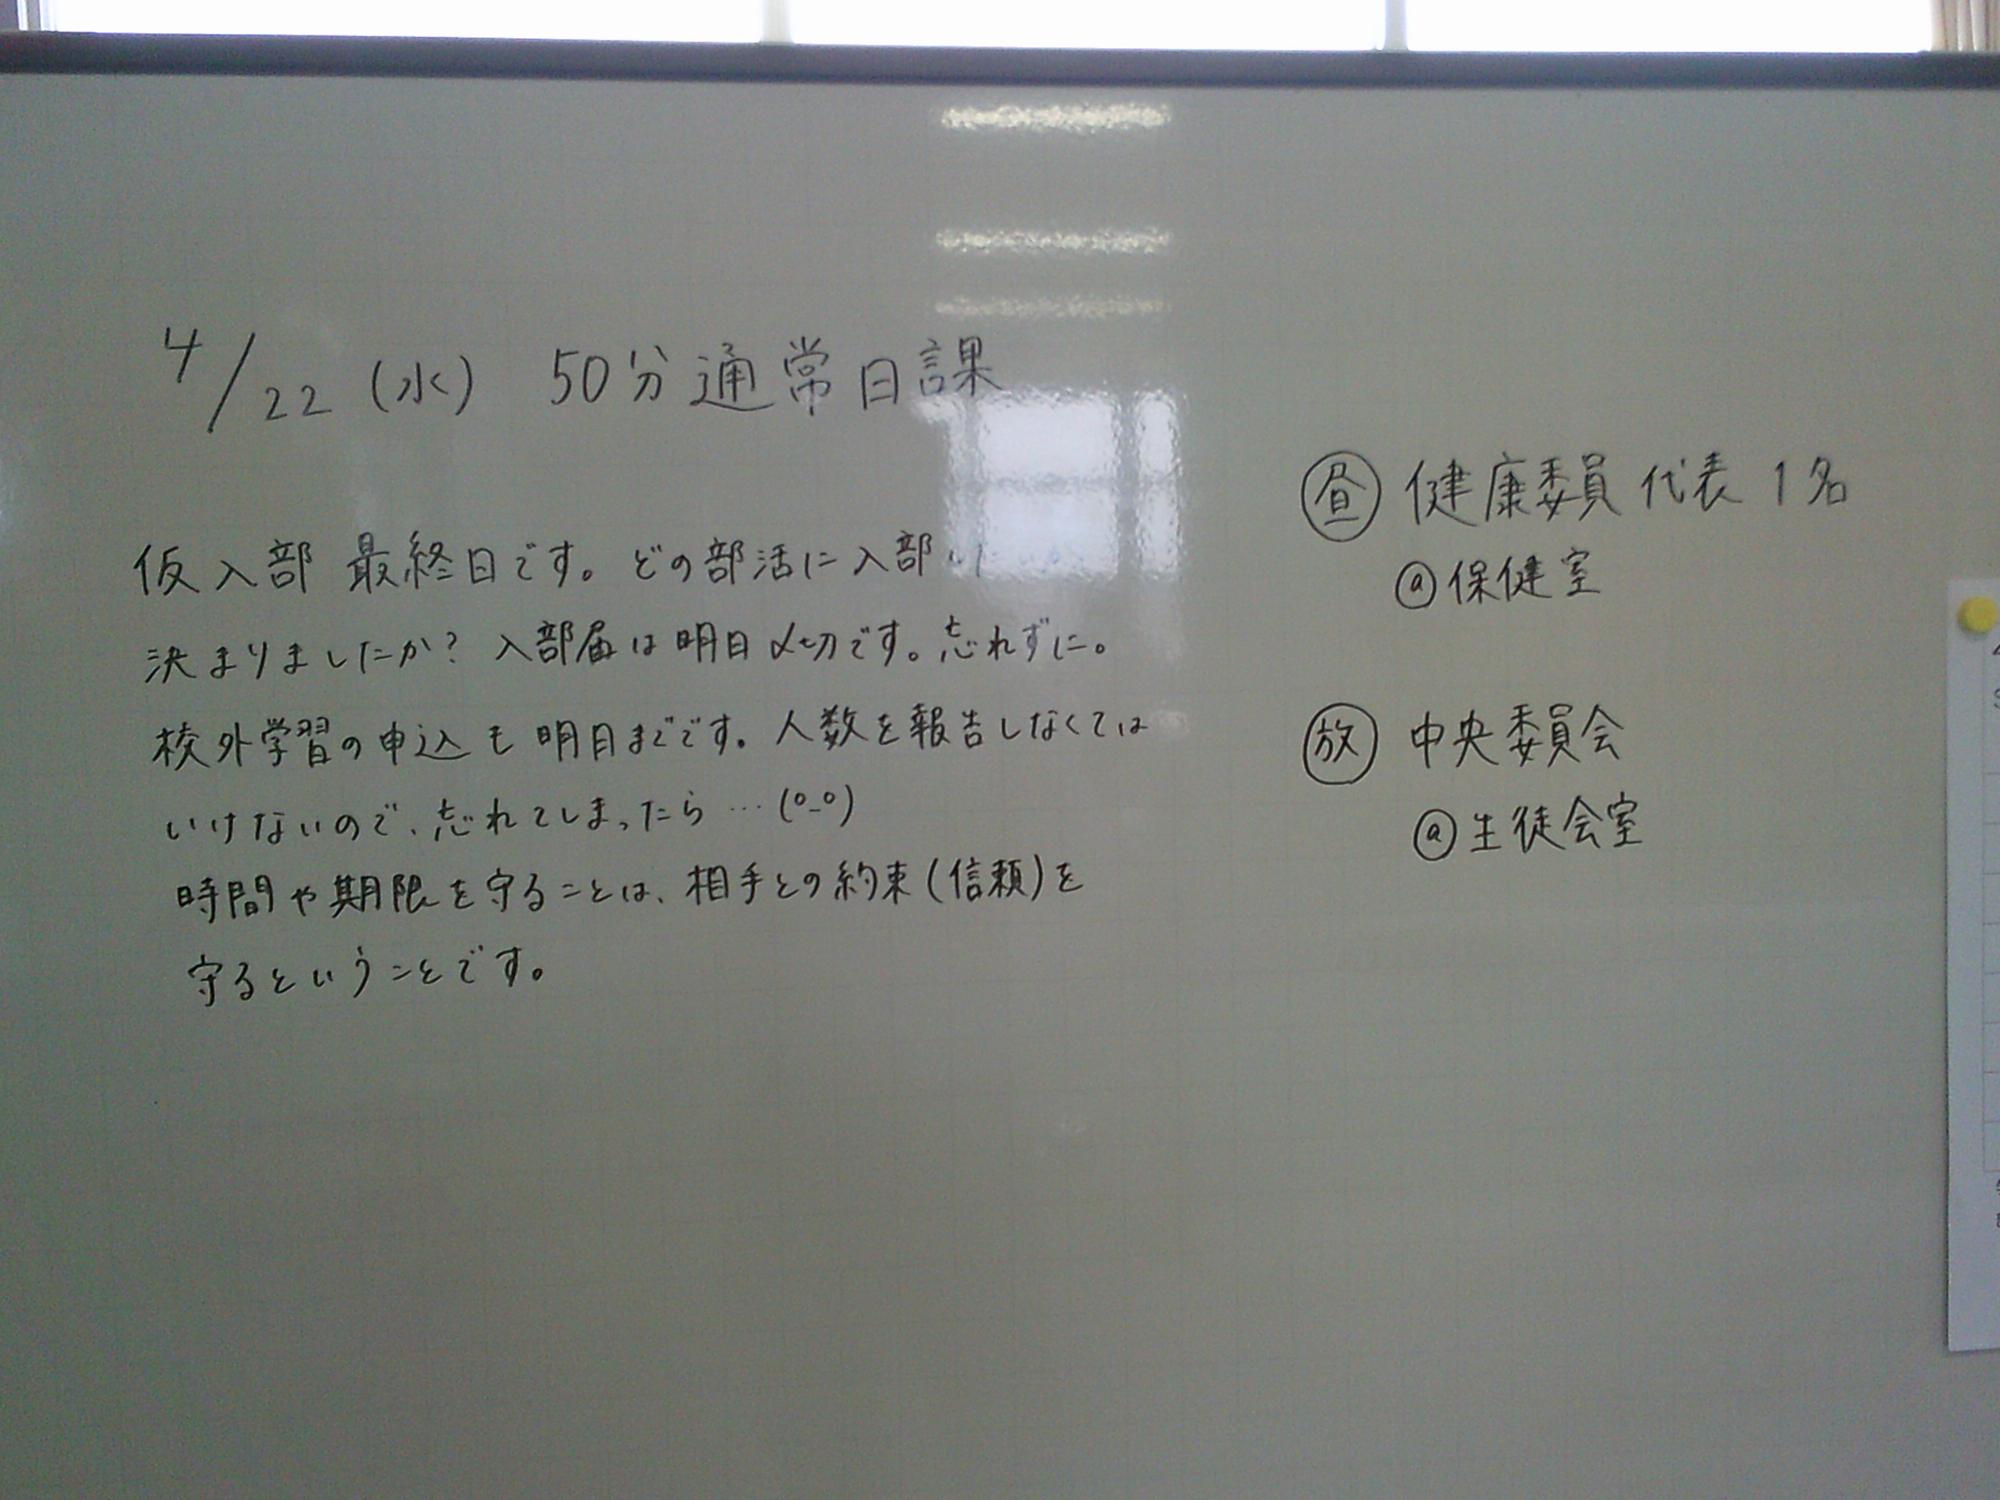 4/22 (水) 50分通常日課
仮入部 最終日です。どの部活に入部
決まりましたか? 入部届は明日〆切です。忘れずに。
校外学習の申込も明日までです。人数を報告しなくては
いけないので、忘れてしまったら…(°_°)
時間や期限を守ることは、相手との約束(信頼)を
守るということです。
昼 健康委員 代表 1名
@保健室
放 中央委員会
@生徒会室